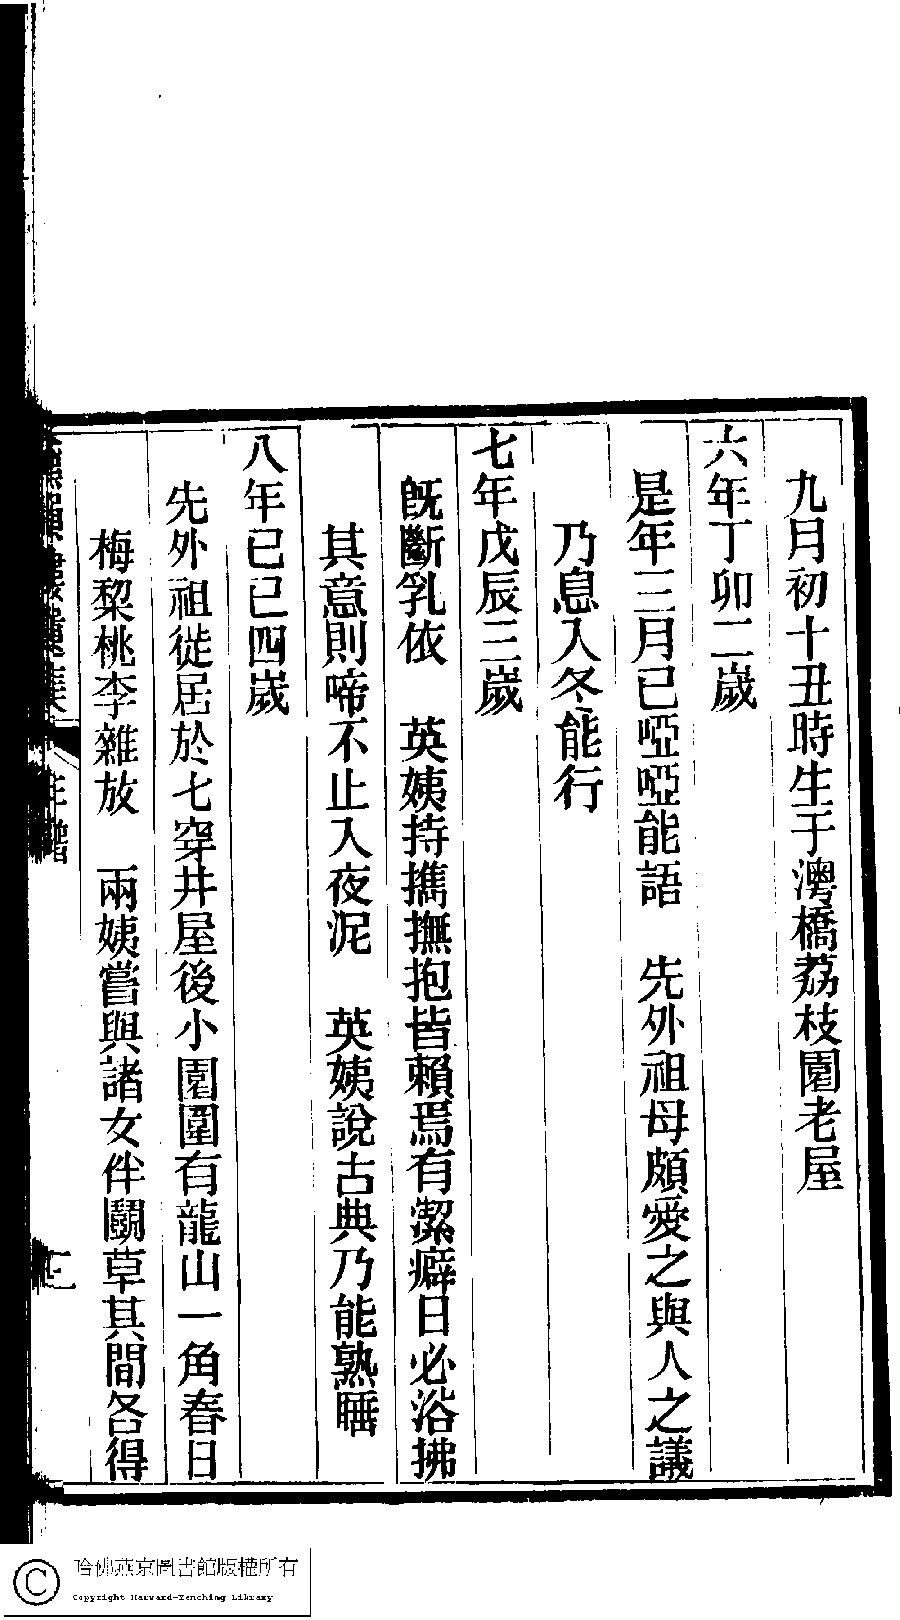 九月初十丑時生于澳橋荔枝園老屋
六年丁卯二歲
是年三月已啞啞能語　先外祖母頗愛之與人之議
乃息入冬能行
七年戊辰三歲
旣斷乳依　英姨持攜撫抱皆賴焉有潔癖日必浴拂
其意則啼不止入夜泥　英姨說古典乃能熟睡
八年已巳四歲
先外祖徙居於七穿井屋後小園圍有龍山一角春日
梅棃桃李雜放　兩姨嘗與諸女伴鬬草其間各得
年譜
三
哈佛燕京圖書館版權所有
Copyright Harvard-Yenching Library